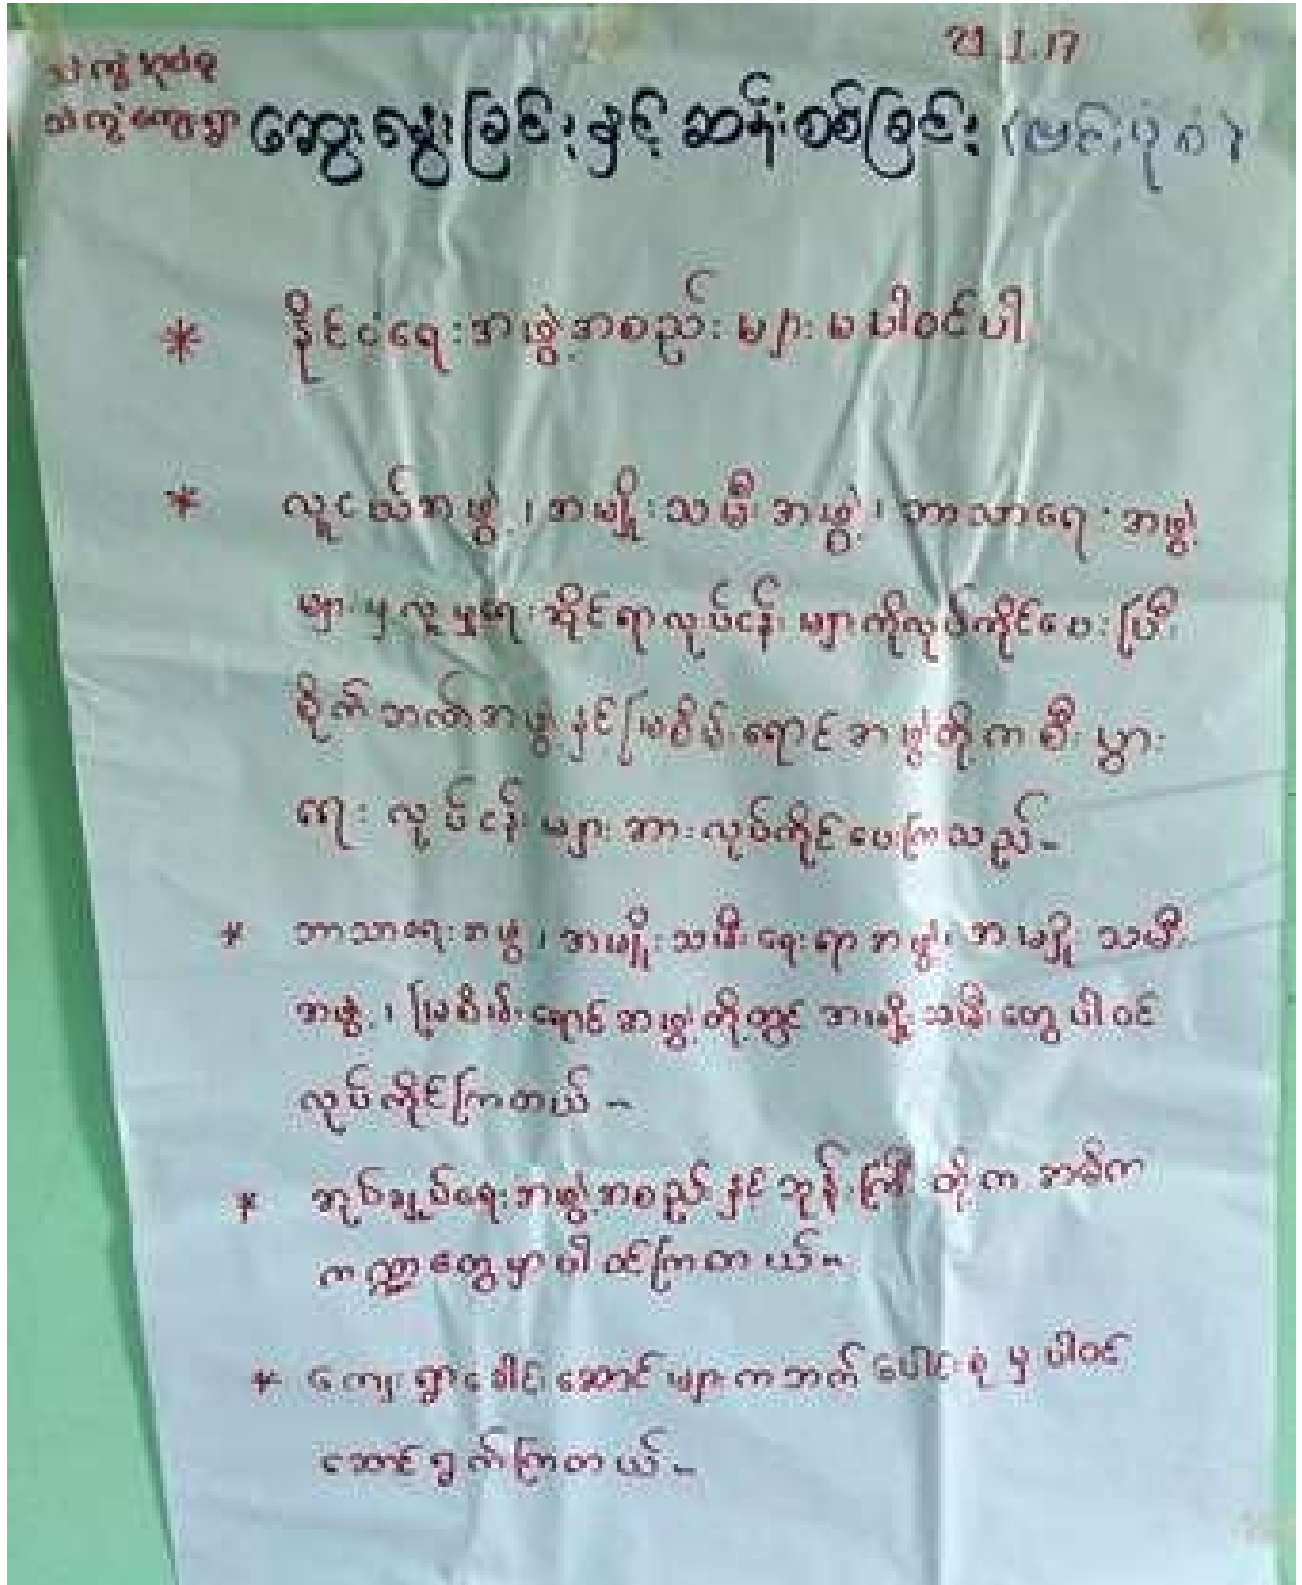 သဲကွဲအုပ်စု
21.1.17
သဲကွဲကျေးရွာ ဆွေးနွေးခြင်းနှင့်ဆန်းစစ်ခြင်း (ဗင်းပုံစံ)
* နိုင်ငံရေးအဖွဲ့အစည်းများမပါဝင်ပါ
* လူငယ်အဖွဲ့၊ အမျိုးသမီးအဖွဲ့၊ ဘာသာရေးအဖွဲ့
များမှလူမှုရေးဆိုင်ရာလုပ်ငန်းများကိုလုပ်ကိုင်ပေးပြီး
စိုက်ဘဏ်အဖွဲ့နှင့်မြစိမ်းရောင်အဖွဲ့တို့ကစီးပွား
ရေးလုပ်ငန်းများအားလုပ်ကိုင်ပေးကြသည်။
* ဘာသာရေးအဖွဲ့၊ အမျိုးသမီးရေးရာအဖွဲ့၊ အမျိုးသမီး
အဖွဲ့၊ မြစိမ်းရောင်အဖွဲ့တို့တွင် အမျိုးသမီးတွေပါဝင်
လုပ်ကိုင်ကြတယ်။
* အုပ်ချုပ်ရေးအဖွဲ့အစည်းနှင့်ဘုန်းကြီးတို့က အဓိက
ကဏ္ဍတွေမှာပါဝင်ကြတယ်။
* ကျေးရွာခေါင်းဆောင်များကဘက်ပေါင်းစုံမှပါဝင်
ဆောင်ရွက်ကြတယ်။